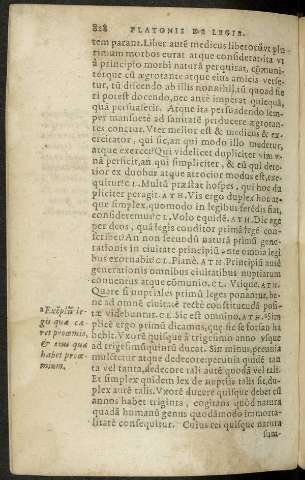 828 PLATONIS DE LEGIB.
tem parant. Liber autē medicus liberorū vt plu
rimum morbos curat atque considerat: ita vt
à principio morbi naturā perquirat, cōmuni-
térque cū ægrotante atque eius amicis verse-
tur, tū discendo ab illis nonnihil, tū quoad fie
ri potest docendo, nec ante imperat quicquā,
quā persuaserit. Atque ita persuadendo sem-
per mansuetè ad sanitatē perducere ægrotan-
tes conatur. Vter melior est & medicus & ex-
ercitator, qui sic, an qui modo illo medetur,
atque exercet? Qui videlicet dupliciter
nā perficit, an qui simpliciter, & eū qui dete-
rior ex duobus atque atrocior modus est, exe-
quitur? CL. Multū præstat hospes, qui hoc du
pliciter peragit. ATH. Vis ergo duplex hoc at-
que simplex, quomodo in legibus ferēdis fiat,
consideremus? CL. Volo equidē. ATH. Dic age
per deos, quā legis conditor primā legē con-
scribet? An non secundū naturā primū gene-
rationis in ciuitate principiū ante omnia legi
bus exornabit? CL. Planè. ATH. Principiū autē
generationis omnibus ciuitatibus nuptiarum
conuentus atque cōmunio. CL. Vtique. ATH.
Quare si nuptiales primū leges ponantur, be-
ne ad omnē ciuitatē rectè constituendā posi-
tæ videbuntur. CL. Sic est omnino. ATH. Sim
plicē ergo primū dicamus, quæ sic se forsan ha
bebit. Vxorē quisque à trigesimo anno vsque
ad trigesimūquintū ducat. Sin minus, pecunia
mulctetur atque dedecore: pecunia quidē tan
ta vel tanta, dedecore tali autē quodā vel tali.
Et simplex quidem lex de nuptiis talis sit, du-
plex autē talis. Vxorē ducere quisque debet cū
annos habet triginta, cogitans quòd natura
quadā humanū genus quodāmodo immorta-
litatē consequitur. Cuius rei quisque natura
sum-
a Exēplū le-
gū quæ ca
ret proœmio,
& eius quæ
habet proœ-
mium.